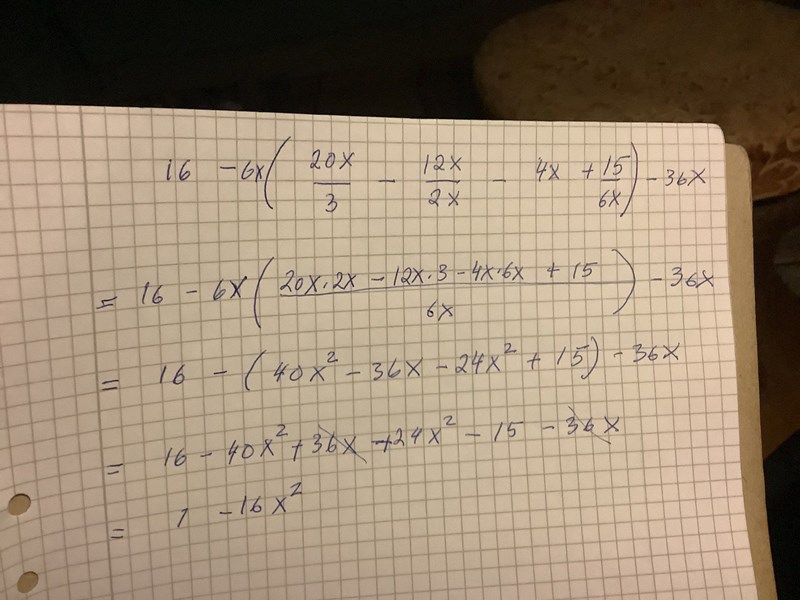 16 - 6x ( 20x/3 - 12x/2x - 4x + 15/6x ) - 36x
= 16 - 6x ( (20x·2x - 12x·3 - 4x·6x + 15)/6x ) - 36x
= 16 - ( 40x² - 36x - 24x² + 15 ) - 36x
= 16 - 40x² + 36x + 24x² - 15 - 36x
= 1 - 16x²